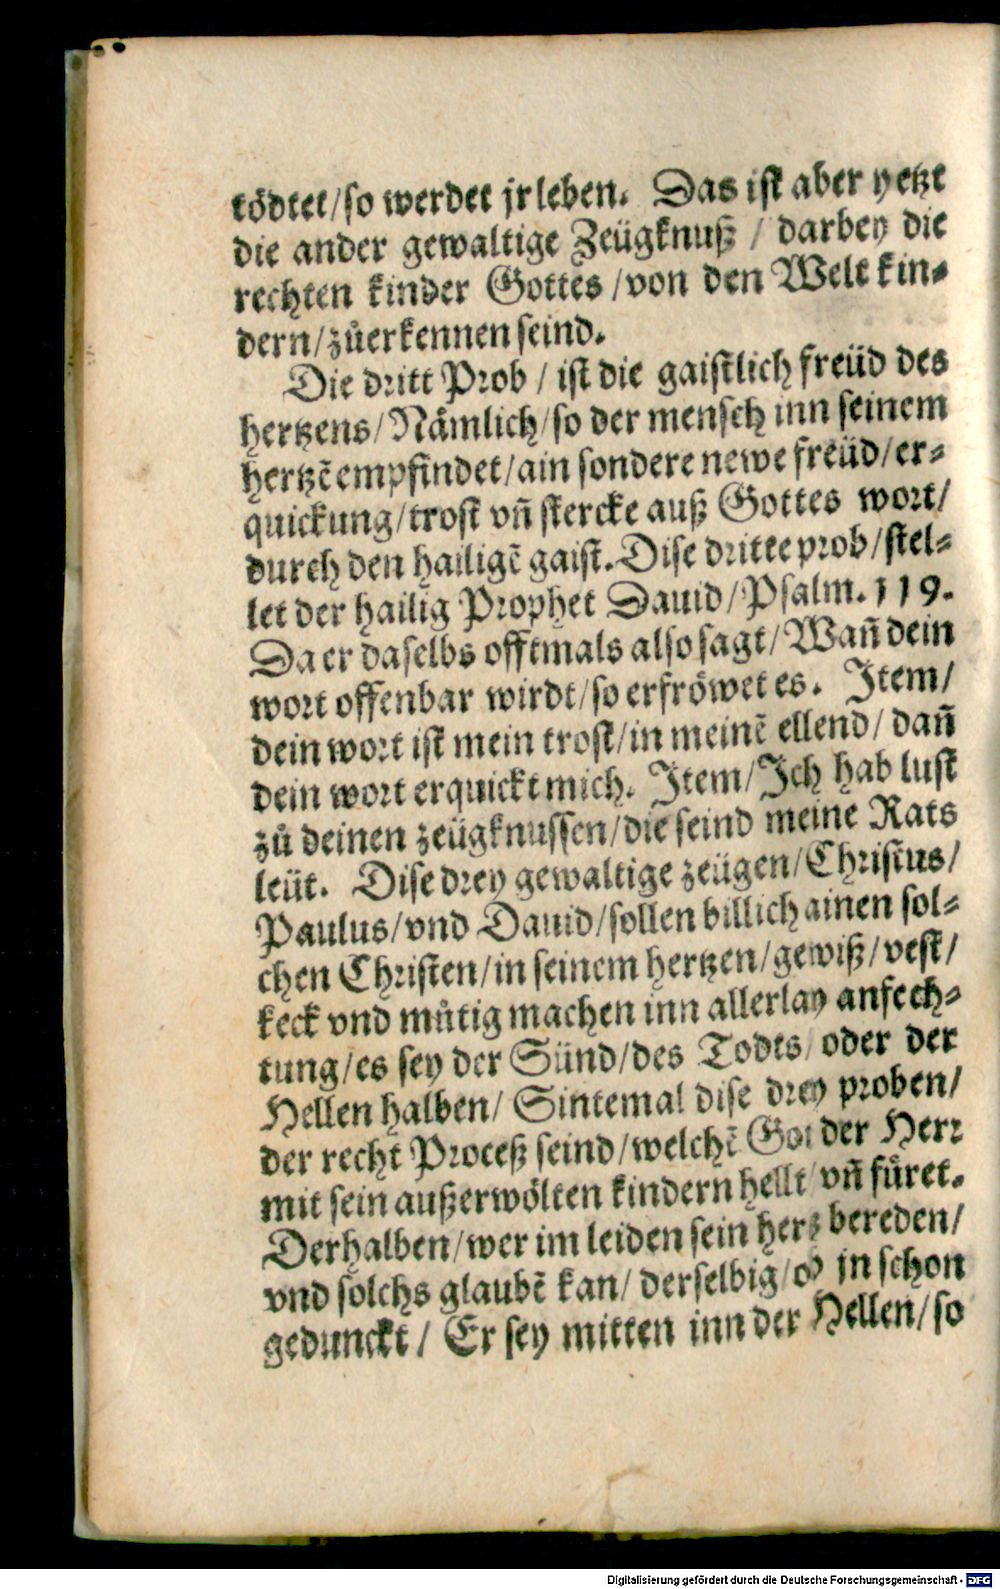 tödtet/so werdet jr leben. Das ist aber yetzt
die ander gewaltige Zeügknuß / darbey die
rechten kinder Gottes /von den Welt kin-
dern/zůerkennen seind.
Die dritt Prob / ist die gaistlich freüd des
hertzens/Nämlich/so der mensch inn seinem
hertzẽ empfindet/ain sondere newe freüd/er-
quickung/trost vñ stercke auß Gottes wort/
durch den hailigẽ gaist. Dise dritte prob/stel-
let der hailig Prophet Dauid/Psalm. 119.
Da er daselbs offtmals also sagt/Wañ dein
wort offenbar wirdt/so erfröwet es. Item/
dein wort ist mein trost/in meinẽ ellend/ dañ
dein wort erquickt mich. Item/Ich hab lust
zů deinen zeügknussen/die seind meine Rats
leüt. Dise drey gewaltige zeügen/Christus/
Paulus/vnd Dauid/sollen billich ainen sol-
chen Christen/in seinem hertzen/gewiß/vest/
keck vnd můtig machen inn allerlay anfech-
tung/es sey der Sünd/des Todts/oder der
Hellen halben/ Sintemal dise drey proben/
der recht Proceß seind/welchẽ Got der Herr
mit sein außerwölten kindern hellt/vñ füret.
Derhalben/wer im leiden sein hertz bereden/
vnd solchs glaubẽ kan/ derselbig/ob jn schon
gedunckt / Er sey mitten inn der Hellen/so
Digitalisierung gefördert durch die Deutsche Forschungsgemeinschaft - DFG